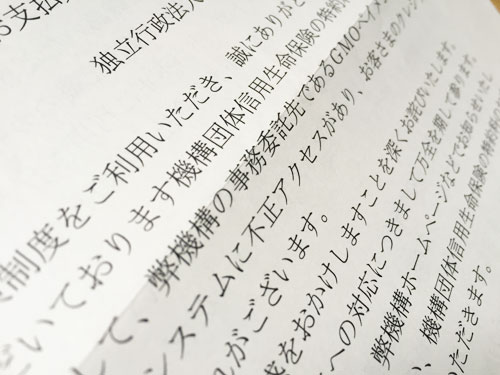 お支払
独立行政法人
制度をご利用いただき、誠にありがと
だいております機構団体信用生命保険の特約
して、弊機構の事務委託先であるGMOペイメン
システムに不正アクセスがあり、お客さまのクレジッ
れがございます。
惑をおかけしますことを深くお詫びいたします。
への対応につきまして万全を期して参ります。
弊機構ホームページなどでお知らせいたし
、機構団体信用生命保険の特約
ただきます。